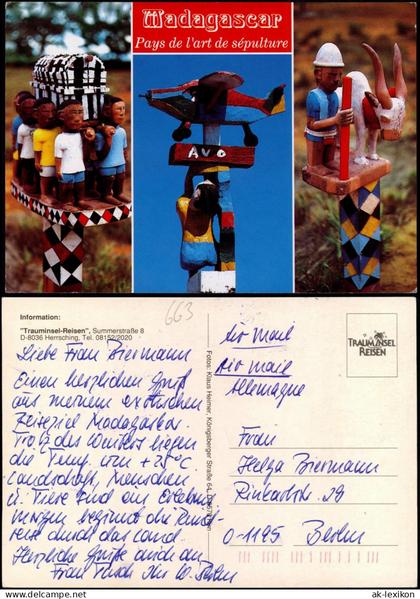 Madagascar
Pays de l'art de sépulture
AVO
Information:
"Trauminsel-Reisen", Summerstraße 8
D-8036 Herrsching, Tel. 08152/2020
663
Liebe Frau Biermann
Einen herzlichen Gruß
aus meinem exotischen
Reiseziel Madagaskar.
Trotz des Winters liegen
die Temp. um +28°C.
Landschaft, Menschen
u. Tiere sind ein Erlebnis
morgen beginnt die Rund-
reise durch das Land.
Herzliche Grüße auch an
Frau
Berlin
Fotos: Klaus Heimer, Königsberger Straße 64,
air mail
air mail
Allemagne
TRAUMINSEL
REISEN
Frau
Helga Biermann
29
O-1195 Berlin
© ak-lexikon
ak-lexikon.com